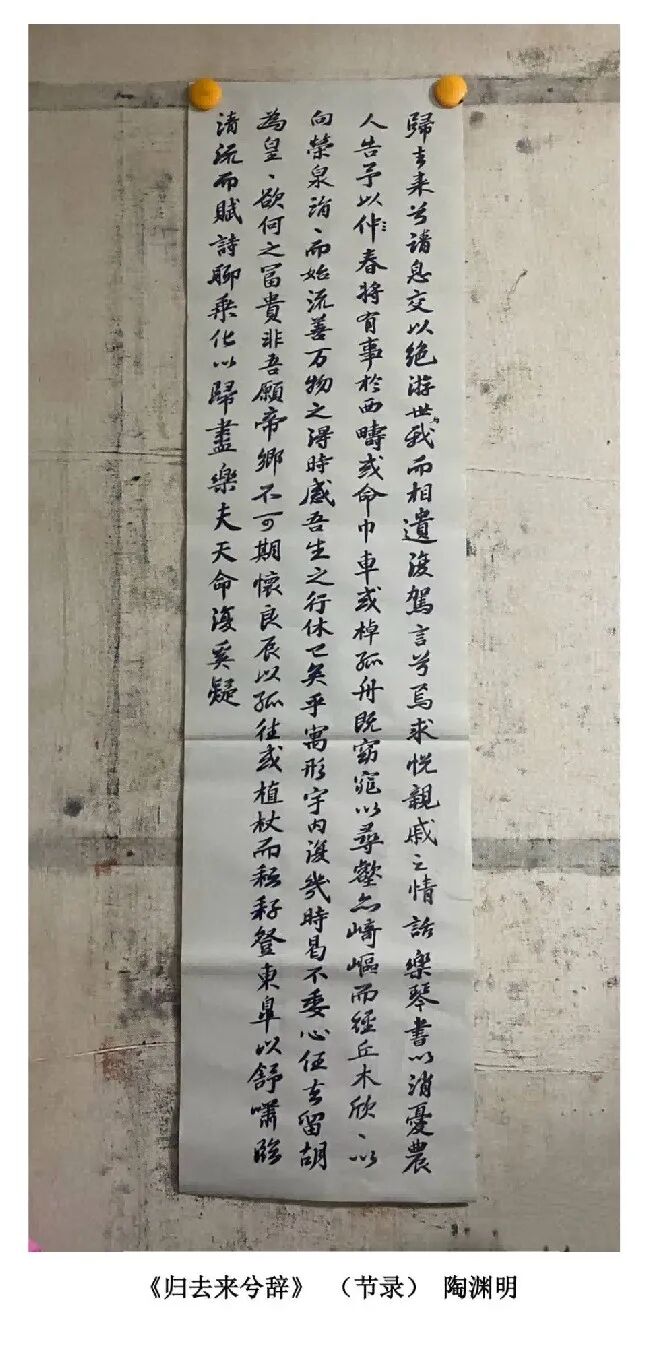 歸去来兮請息交以绝游世我而相遺復駕言兮焉求悦親戚之情話樂琴書以消憂農
人告予以仲春将有事於西疇或命巾車或棹孤舟既窈窕以尋壑亦崎嶇而經丘木欣、以
向榮泉涓、而始流善万物之得時感吾生之行休已矣乎寓形宇内復幾時曷不委心任去留胡
為皇、欲何之富貴非吾願帝鄉不可期懷良辰以孤往或植杖而耘耔登東皐以舒嘯臨
清流而賦詩聊乘化以歸盡樂夫天命復奚疑
《归去来兮辞》 （节录） 陶渊明